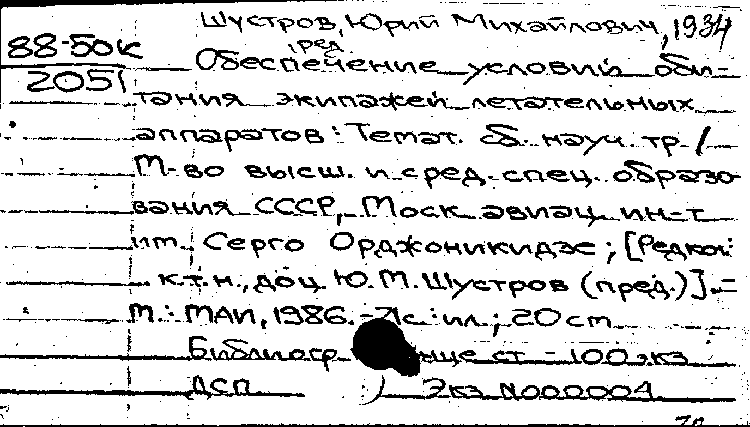 Шустров, Юрий Михайлович, 1934
пред.
88-50к
2051
Обеспечение условий оби-
тания экипажей летательных
аппаратов: Темат. сб. науч. тр. /
М-во высш. и сред. спец. образо-
вания СССР, Моск. авиац. ин-т
им. Серго Орджоникидзе; [Редкол.:
к.т.н., доц. Ю.М. Шустров (пред.)]. -
М.: МАИ, 1986. - с.: ил.; 20 см
Библиогр ст - 100 экз
ДСП Экз N000004